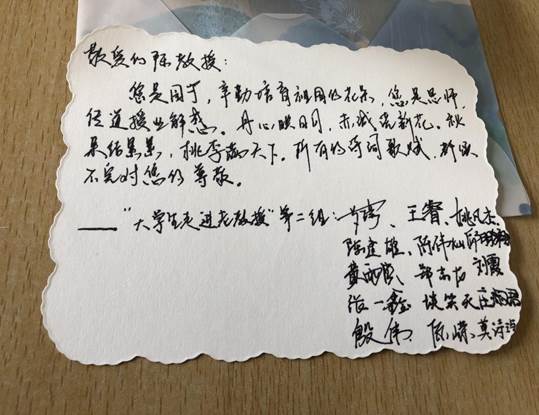 敬爱的陈教授：
您是园丁，辛勤培育祖国的花朵，您是恩师，
传道授业解惑。丹心映日月，赤诚浇新花。秋
果结累累，桃李满天下。所有的诗词歌赋，都道
不完对您的尊敬。
——“大学生走进老教授”第二组：、王睿、姚凡杰
陈建雄、陈伟灿、
黄丽岚、郑志龙 刘霞
张一鑫 谈笑天
殷伟、陈嵘、莫